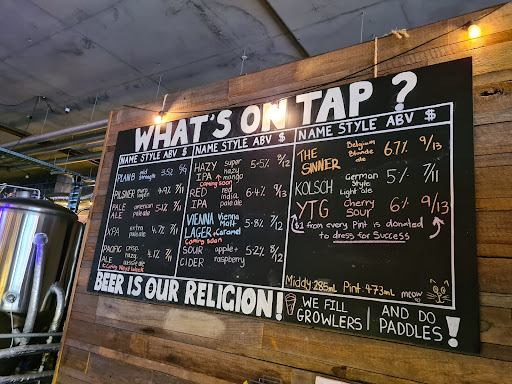 WHAT'S ON TAP?
NAME STYLE ABV $
PLAN B mid strength 3.5%
PILSNER 4.9% 7/11
PALE ALE american pale ale 5%
XPA extra pale ale 4.7% 7/11
PACIFIC ALE crisp, hazy, 4.1% 7/11
NAME STYLE ABV $
HAZY IPA super hazy mango 5.5% 8/12
Coming soon
RED IPA red india pale 6.4% 9/13
VIENNA LAGER Vienna Malt + Caramel 5.8% 7/12
Coming soon
SOUR CIDER apple + raspberry 5.2% 8/12
NAME STYLE ABV $
THE SINNER Belgium Blonde ale 6.7% 9/13
KOLSCH German Style Light ale 5% 7/11
YTG cherry sour 6% 9/13
$1 from every Pint is donated
to dress for Success
Middy 285mL Pint 473mL meow
BEER IS OUR RELIGION!
WE FILL GROWLERS
AND DO PADDLES!